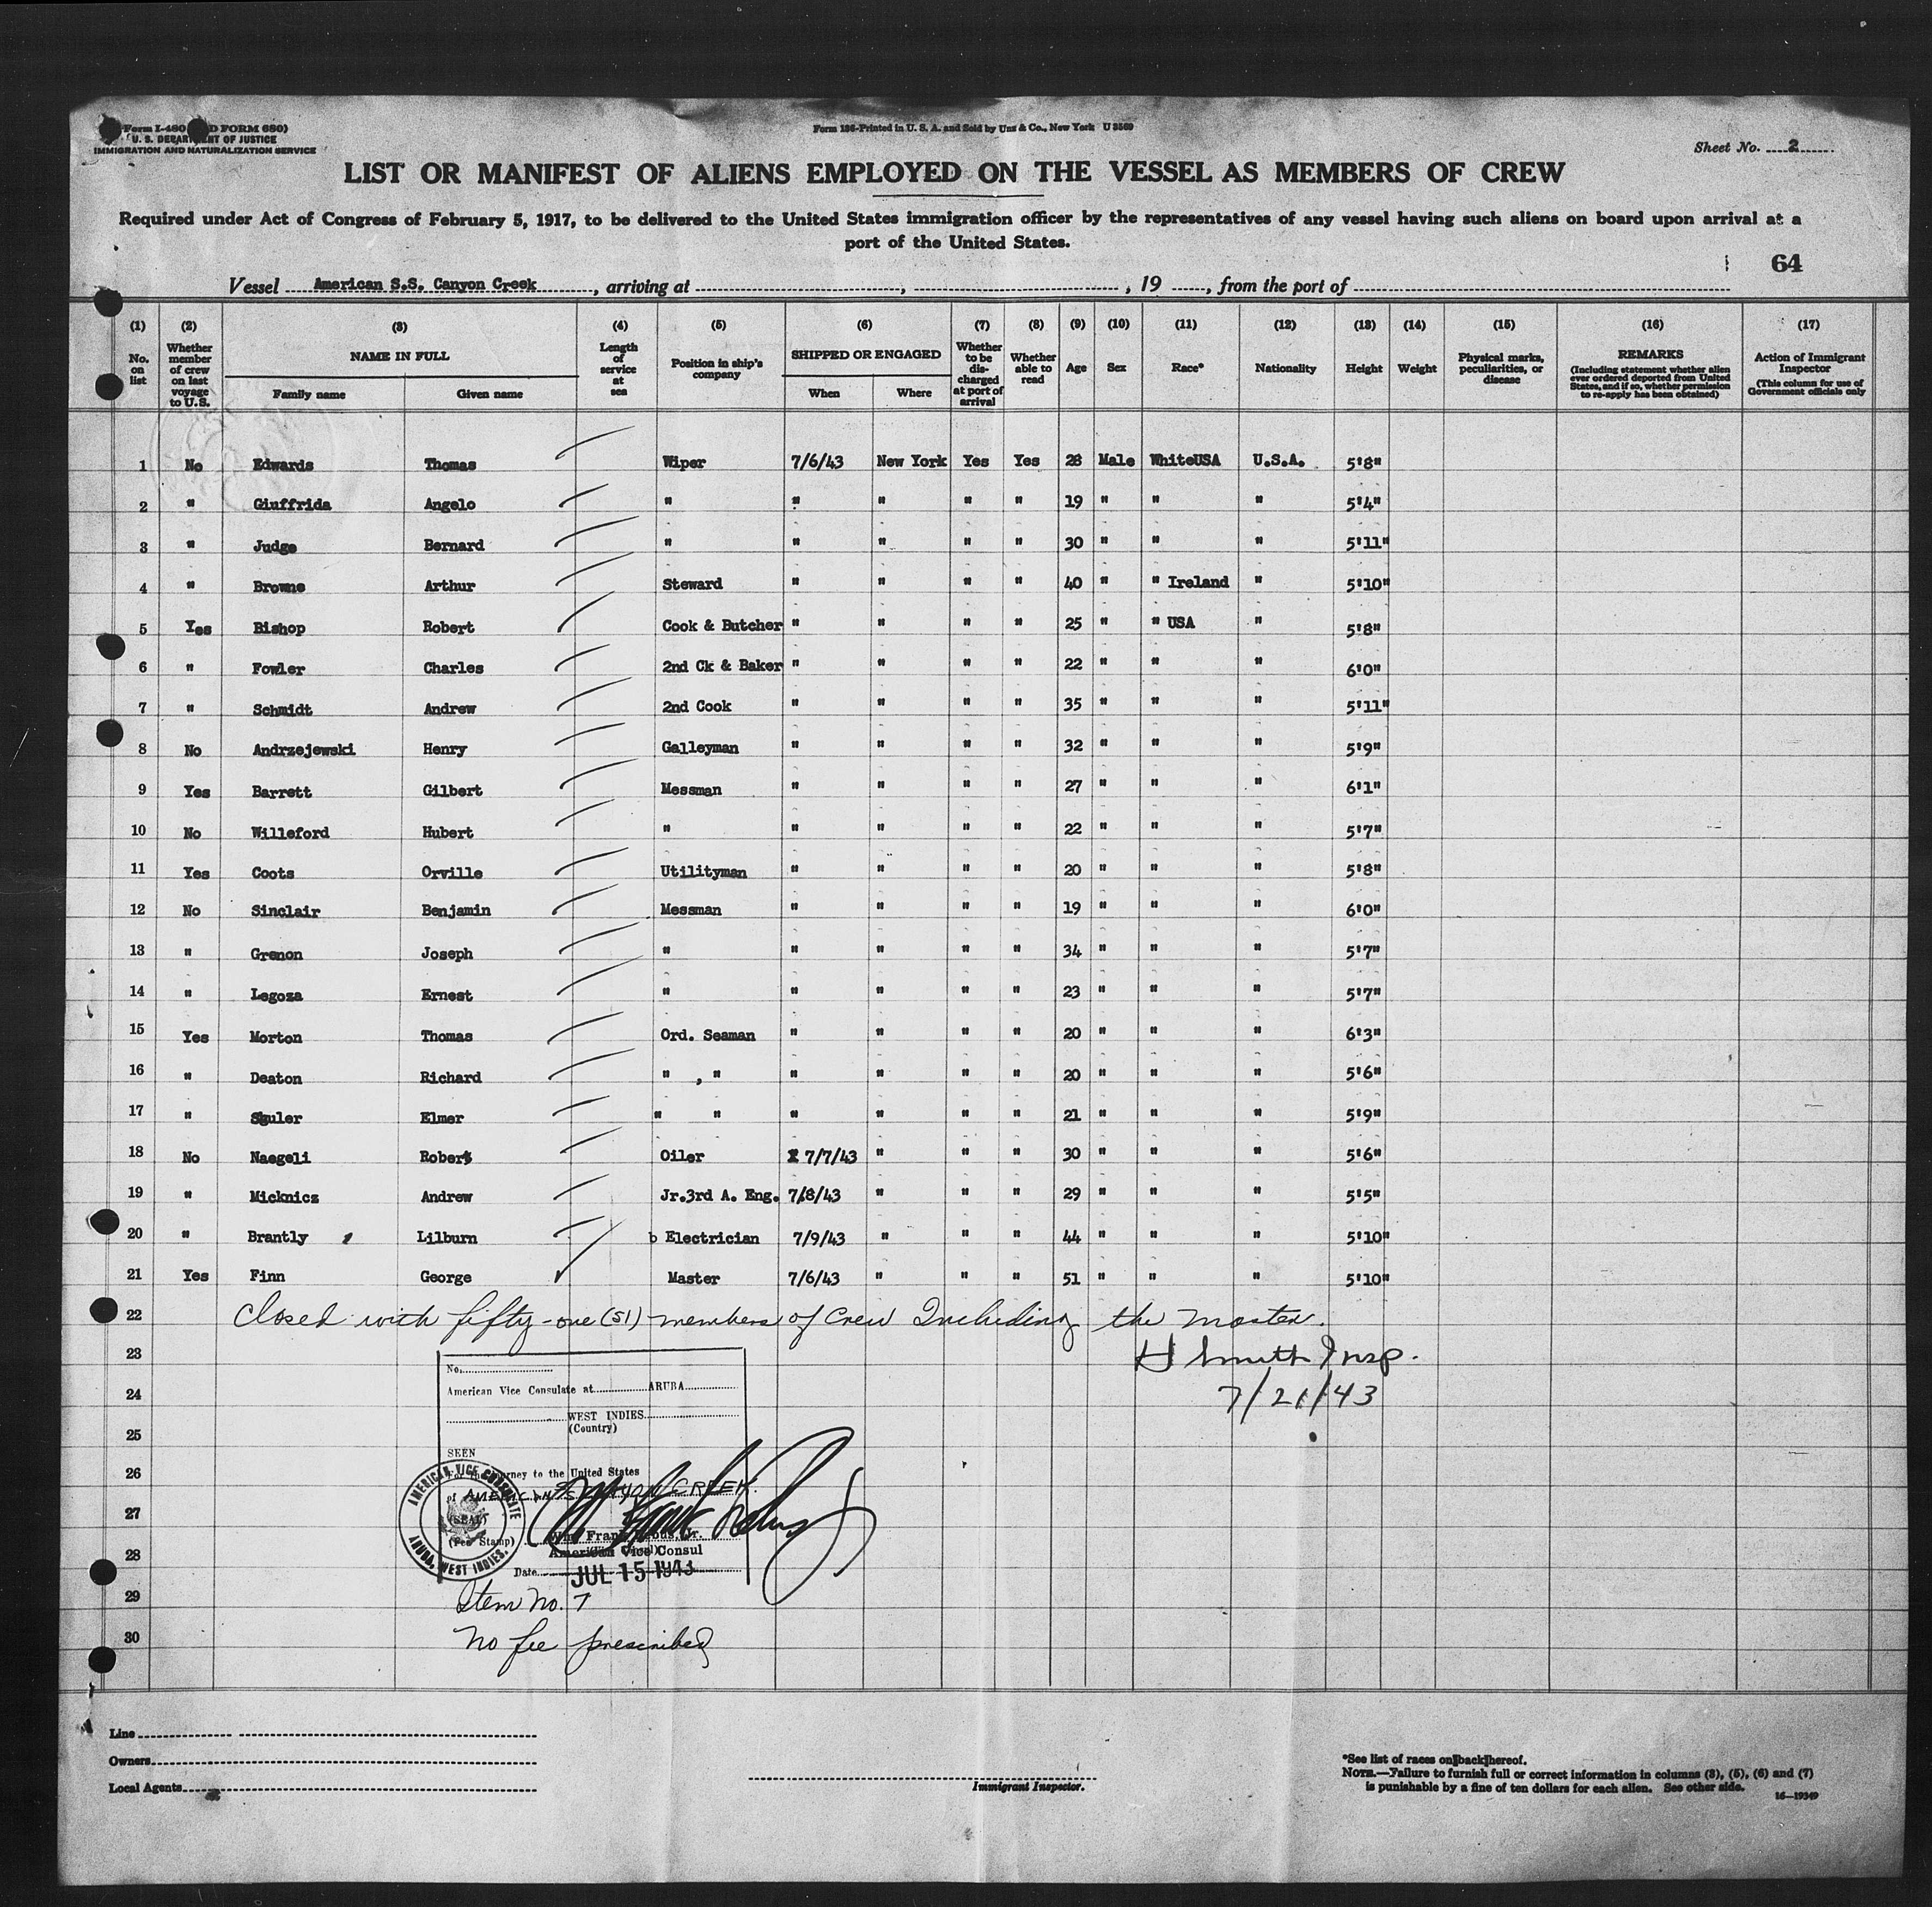 Form I-480 D FORM 680)
U. S. DEPARTMENT OF JUSTICE
IMMIGRATION AND NATURALIZATION SERVICE
Form 186-Printed in U. S. A. and Sold by Unz & Co., New York U 3569
Sheet No. 2
LIST OR MANIFEST OF ALIENS EMPLOYED ON THE VESSEL AS MEMBERS OF CREW
Required under Act of Congress of February 5, 1917, to be delivered to the United States immigration officer by the representatives of any vessel having such aliens on board upon arrival at a
port of the United States.
64
Vessel American S.S. Canyon Creek, arriving at , , 19 , from the port of
(1) (2) (3) (4) (5) (6) (7) (8) (9) (10) (11) (12) (13) (14) (15) (16) (17)
No. on list
Whether member of crew on last voyage to U.S.
NAME IN FULL
Family name Given name
Length of service at sea
Position in ship's company
SHIPPED OR ENGAGED
When Where
Whether to be discharged at port of arrival
Whether able to read
Age Sex Race* Nationality Height Weight
Physical marks, peculiarities, or disease
REMARKS
(Including statement whether alien ever ordered deported from United States, and if so, whether permission to re-apply has been obtained)
Action of Immigrant Inspector
(This column for use of Government officials only
1 No Edwards Thomas Wiper 7/6/43 New York Yes Yes 28 Male WhiteUSA U.S.A. 5'8"
2 " Giuffrida Angelo " " " " " 19 " " " 5'4"
3 " Judge Bernard " " " " " 30 " " " 5'11"
4 " Browne Arthur Steward " " " " 40 " " Ireland " 5'10"
5 Yes Bishop Robert Cook & Butcher " " " " 25 " " USA " 5'8"
6 " Fowler Charles 2nd Ck & Baker " " " " 22 " " " 6'0"
7 " Schmidt Andrew 2nd Cook " " " " 35 " " " 5'11"
8 No Andrzejewski Henry Galleyman " " " " 32 " " " 5'9"
9 Yes Barrett Gilbert Messman " " " " 27 " " " 6'1"
10 No Willeford Hubert " " " " " 22 " " " 5'7"
11 Yes Coots Orville Utilityman " " " " 20 " " " 5'8"
12 No Sinclair Benjamin Messman " " " " 19 " " " 6'0"
13 " Grenon Joseph " " " " " 34 " " " 5'7"
14 " Legoza Ernest " " " " " 23 " " " 5'7"
15 Yes Morton Thomas Ord. Seaman " " " " 20 " " " 6'3"
16 " Deaton Richard " , " " " " " 20 " " " 5'6"
17 " Elmer " " " " " " 21 " " " 5'9"
18 No Naegeli Robert Oiler 7/7/43 " " " 30 " " " 5'6"
19 " Micknicz Andrew Jr.3rd A. Eng. 7/8/43 " " " 29 " " " 5'5"
20 " Brantly Lilburn b Electrician 7/9/43 " " " 44 " " " 5'10"
21 Yes Finn George Master 7/6/43 " " " 51 " " " 5'10"
22 Closed with fifty-one (51) members of Crew Including the master.
23 H Smith Insp.
24 7/21/43
25
26
27
28
29
30
No.
American Vice Consulate at ARUBA
WEST INDIES
(Country)
SEEN
For the journey to the United States
of AMERICAN S.S. CANYON CREEK
AMERICAN VICE CONSULATE
ARUBA, WEST INDIES.
(SEAL)
(Fee Stamp)
American Vice Consul
Date JUL 15 1943
Item No. 7
No fee prescribed
Line
Owners
Local Agents
Immigrant Inspector.
*See list of races on back hereof.
NOTE.—Failure to furnish full or correct information in columns (3), (5), (6) and (7)
is punishable by a fine of ten dollars for each alien. See other side.
16—19349